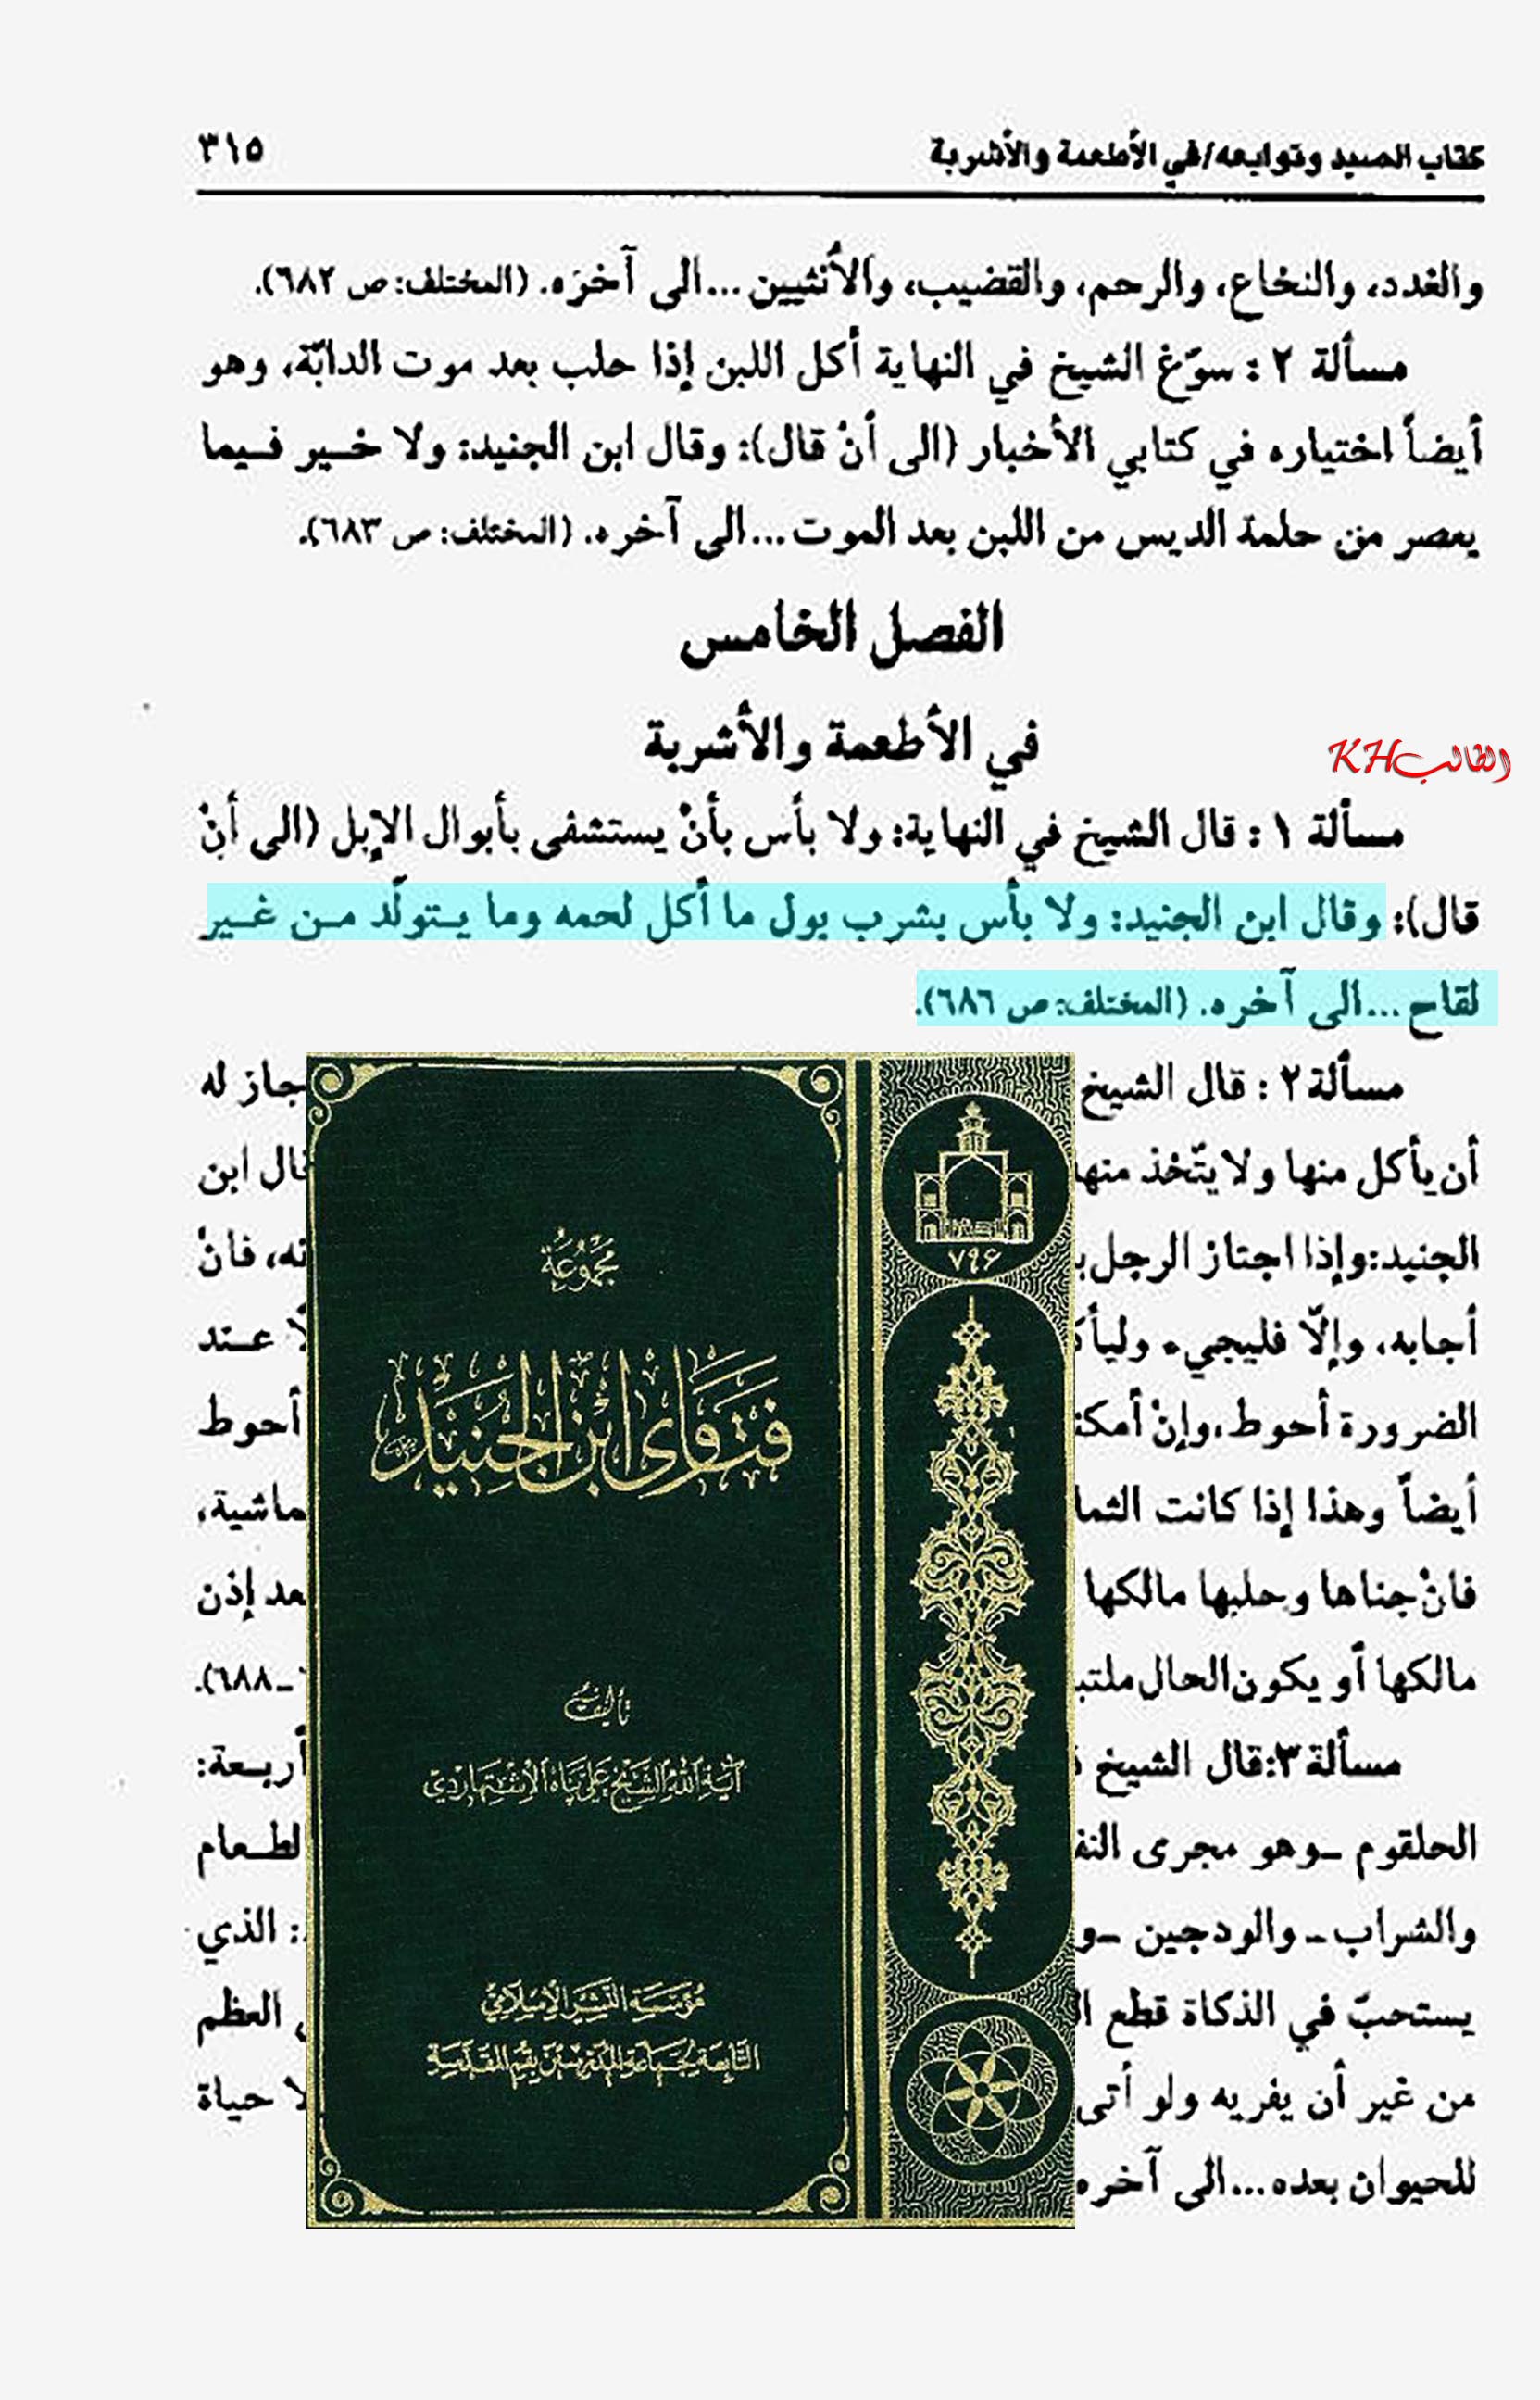 كتاب الصيد وتوابعه/في الأطعمة والأشربة ٣١٥
والغدد، والنخاع، والرحم، والقضيب، والأنثيين...الى آخره. (المختلف: ص ٦٨٢).
مسألة ٢ : سوّغ الشيخ في النهاية أكل اللبن إذا حلب بعد موت الدابّة، وهو
أيضاً اختياره في كتابي الأخبار (الى أنْ قال): وقال ابن الجنيد: ولا خير فيما
يعصر من حلمة الديس من اللبن بعد الموت...الى آخره. (المختلف: ص ٦٨٣).
الفصل الخامس
في الأطعمة والأشربة
الطالب KH
مسألة ١ : قال الشيخ في النهاية: ولا بأس بأنْ يستشفى بأبوال الإبل (الى أنْ
قال): وقال ابن الجنيد: ولا بأس بشرب بول ما أكل لحمه وما يتولّد من غير
لقاح...الى آخره. (المختلف: ص ٦٨٦).
مسألة ٢ : قال الشيخ جاز له
أن يأكل منها ولا يتّخذ منها قال ابن
الجنيد: وإذا اجتاز الرجل فانْ
أجابه، وإلّا فليجيء عند
الضرورة أحوط، وإنْ أحوط
أيضاً وهذا إذا كانت ماشية،
فانْ جناها وحلبها مالكها إذن
مالكها أو يكون الحال ـ ٦٨٨).
مسألة ٣: قال الشيخ أربعة:
الحلقوم ـ وهو مجرى
والشراب ـ والودجين ـ الذي
يستحبّ في الذكاة قطع العظم
من غير أن يفريه ولو أتى حياة
للحيوان بعده...الى آخره
مجموعة
فتاوى ابن الجنيد
تأليف
آية الله الشيخ علي پناه الإشتهاردي
مؤسسة النشر الإسلامي
التابعة لجماعة المدرسين بقم المقدسة
٧٩۶